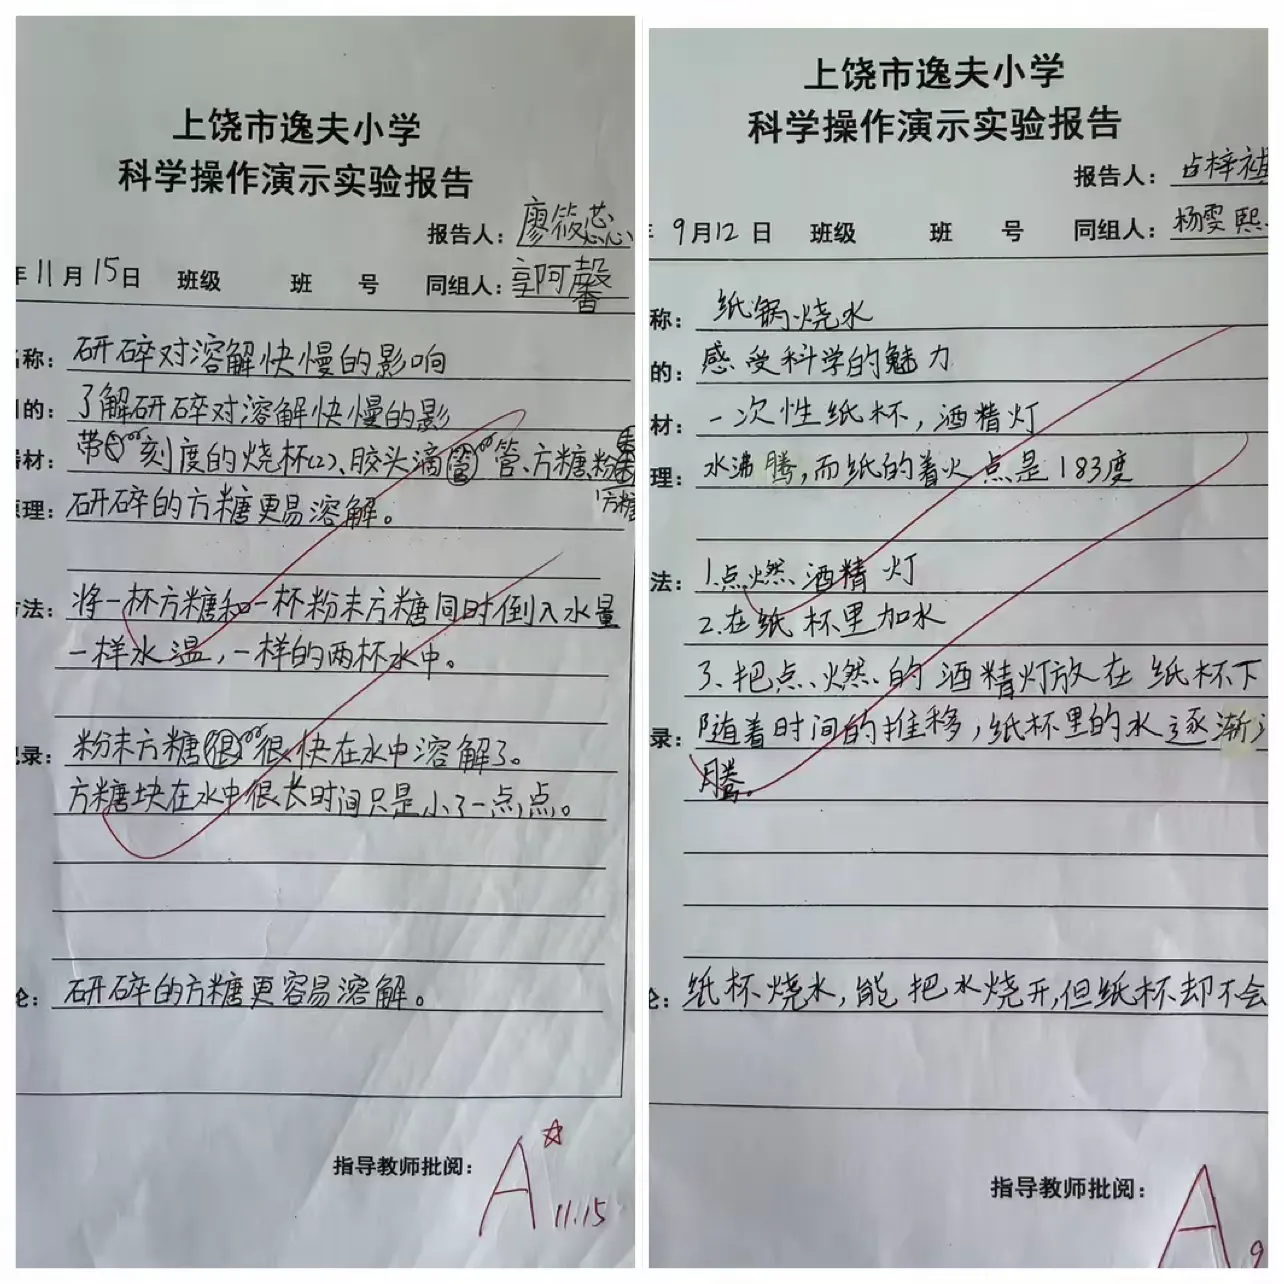 上饶市逸夫小学
科学操作演示实验报告
报告人：廖筱蕊
年11月15日 班级 班 号 同组人：郭阿馨
称：研碎对溶解快慢的影响
的：了解研碎对溶解快慢的影
材：带刻度的烧杯(2)、胶头滴管、方糖、粉末
方糖
理：研碎的方糖更易溶解。
法：将一杯方糖和一杯粉末方糖同时倒入水量
一样水温，一样的两杯水中。
录：粉末方糖很快在水中溶解了。
方糖块在水中很长时间只是小了一点点。
论：研碎的方糖更容易溶解。
指导教师批阅：
A☆
11.15
上饶市逸夫小学
科学操作演示实验报告
报告人：占梓祺
年9月12日 班级 班 号 同组人：杨雯熙
称：纸锅烧水
的：感受科学的魅力
材：一次性纸杯，酒精灯
理：水沸腾，而纸的着火点是183度
法：1.点燃酒精灯
2.在纸杯里加水
3.把点燃的酒精灯放在纸杯下
录：随着时间的推移，纸杯里的水逐渐
腾。
论：纸杯烧水，能把水烧开，但纸杯却不会
指导教师批阅：
A
9